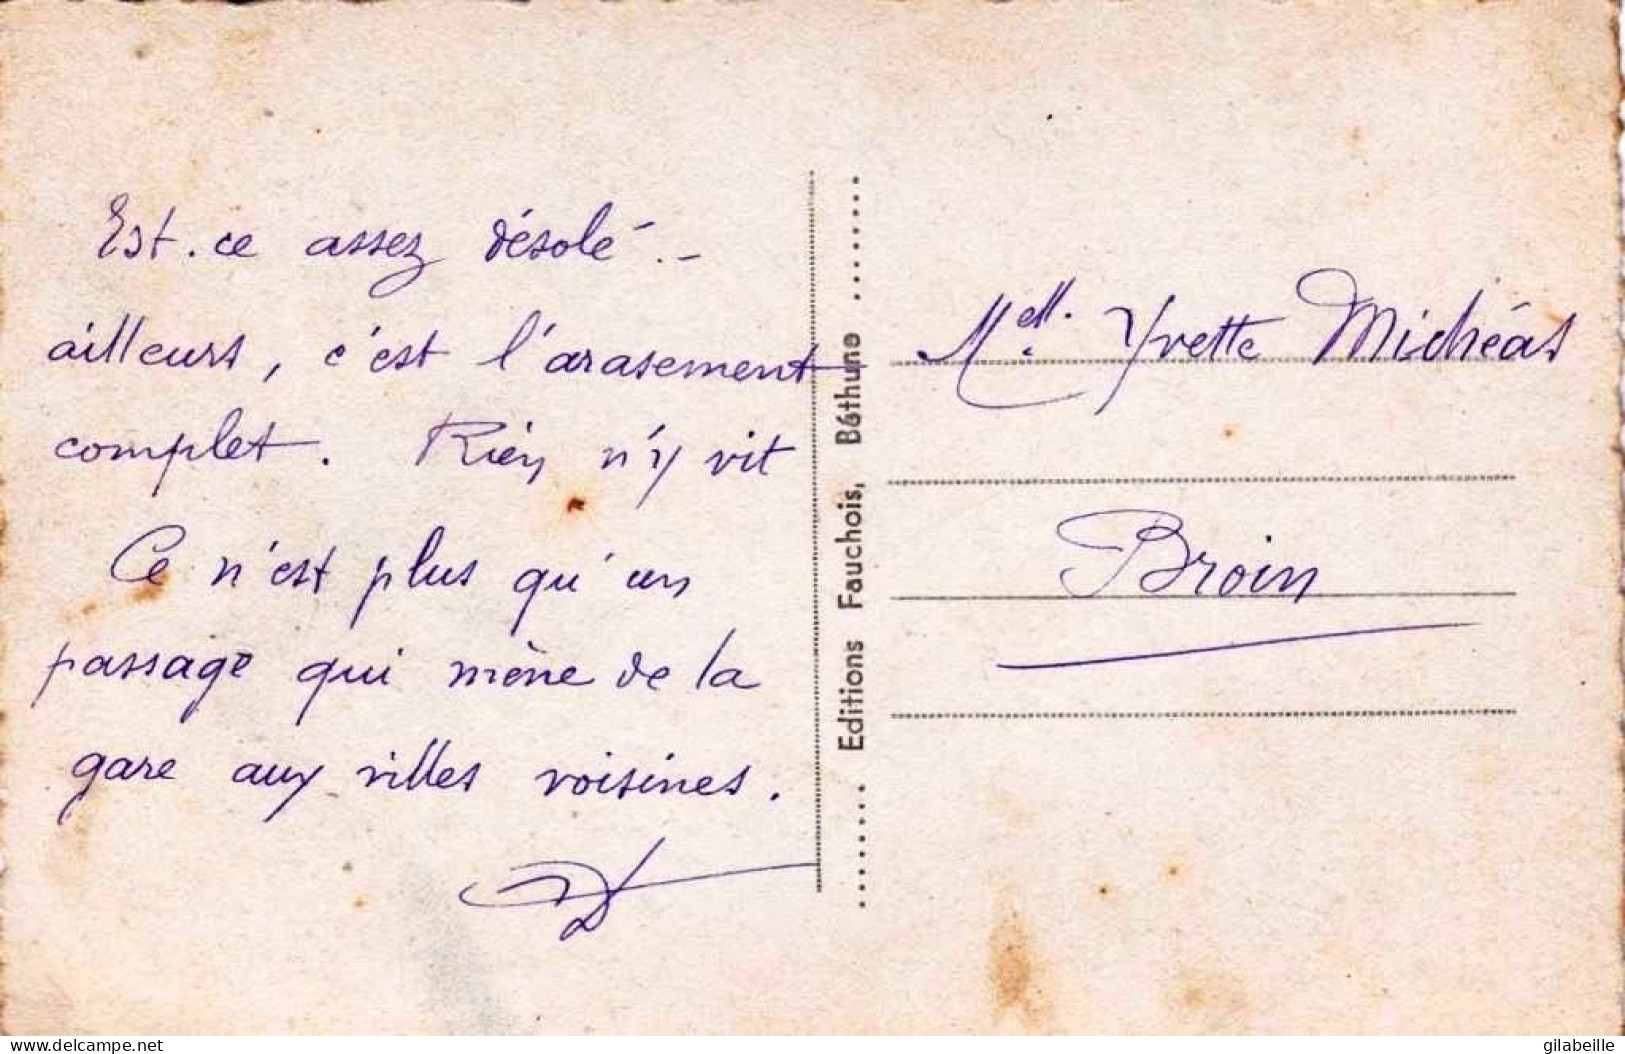 Est-ce assez désolé.-
ailleurs, c'est l'arasement
complet. Rien n'y vit
Ce n'est plus qu'un
passage qui mène de la
gare aux villes voisines.
Editions Fauchois, Béthune
Melle. Yvette Michéas
Broin
www.delcampe.net
gilabeille